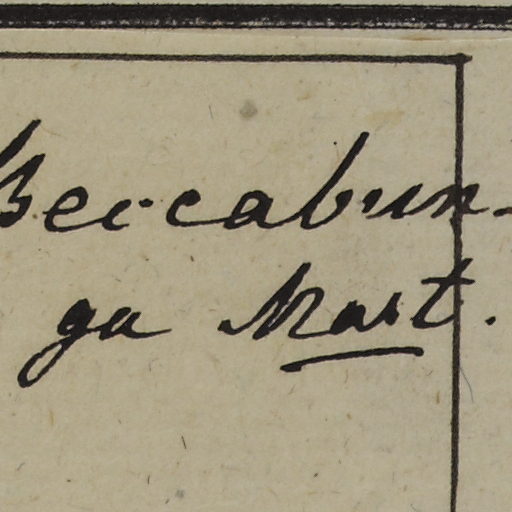 Beccabun-
ga Mart.